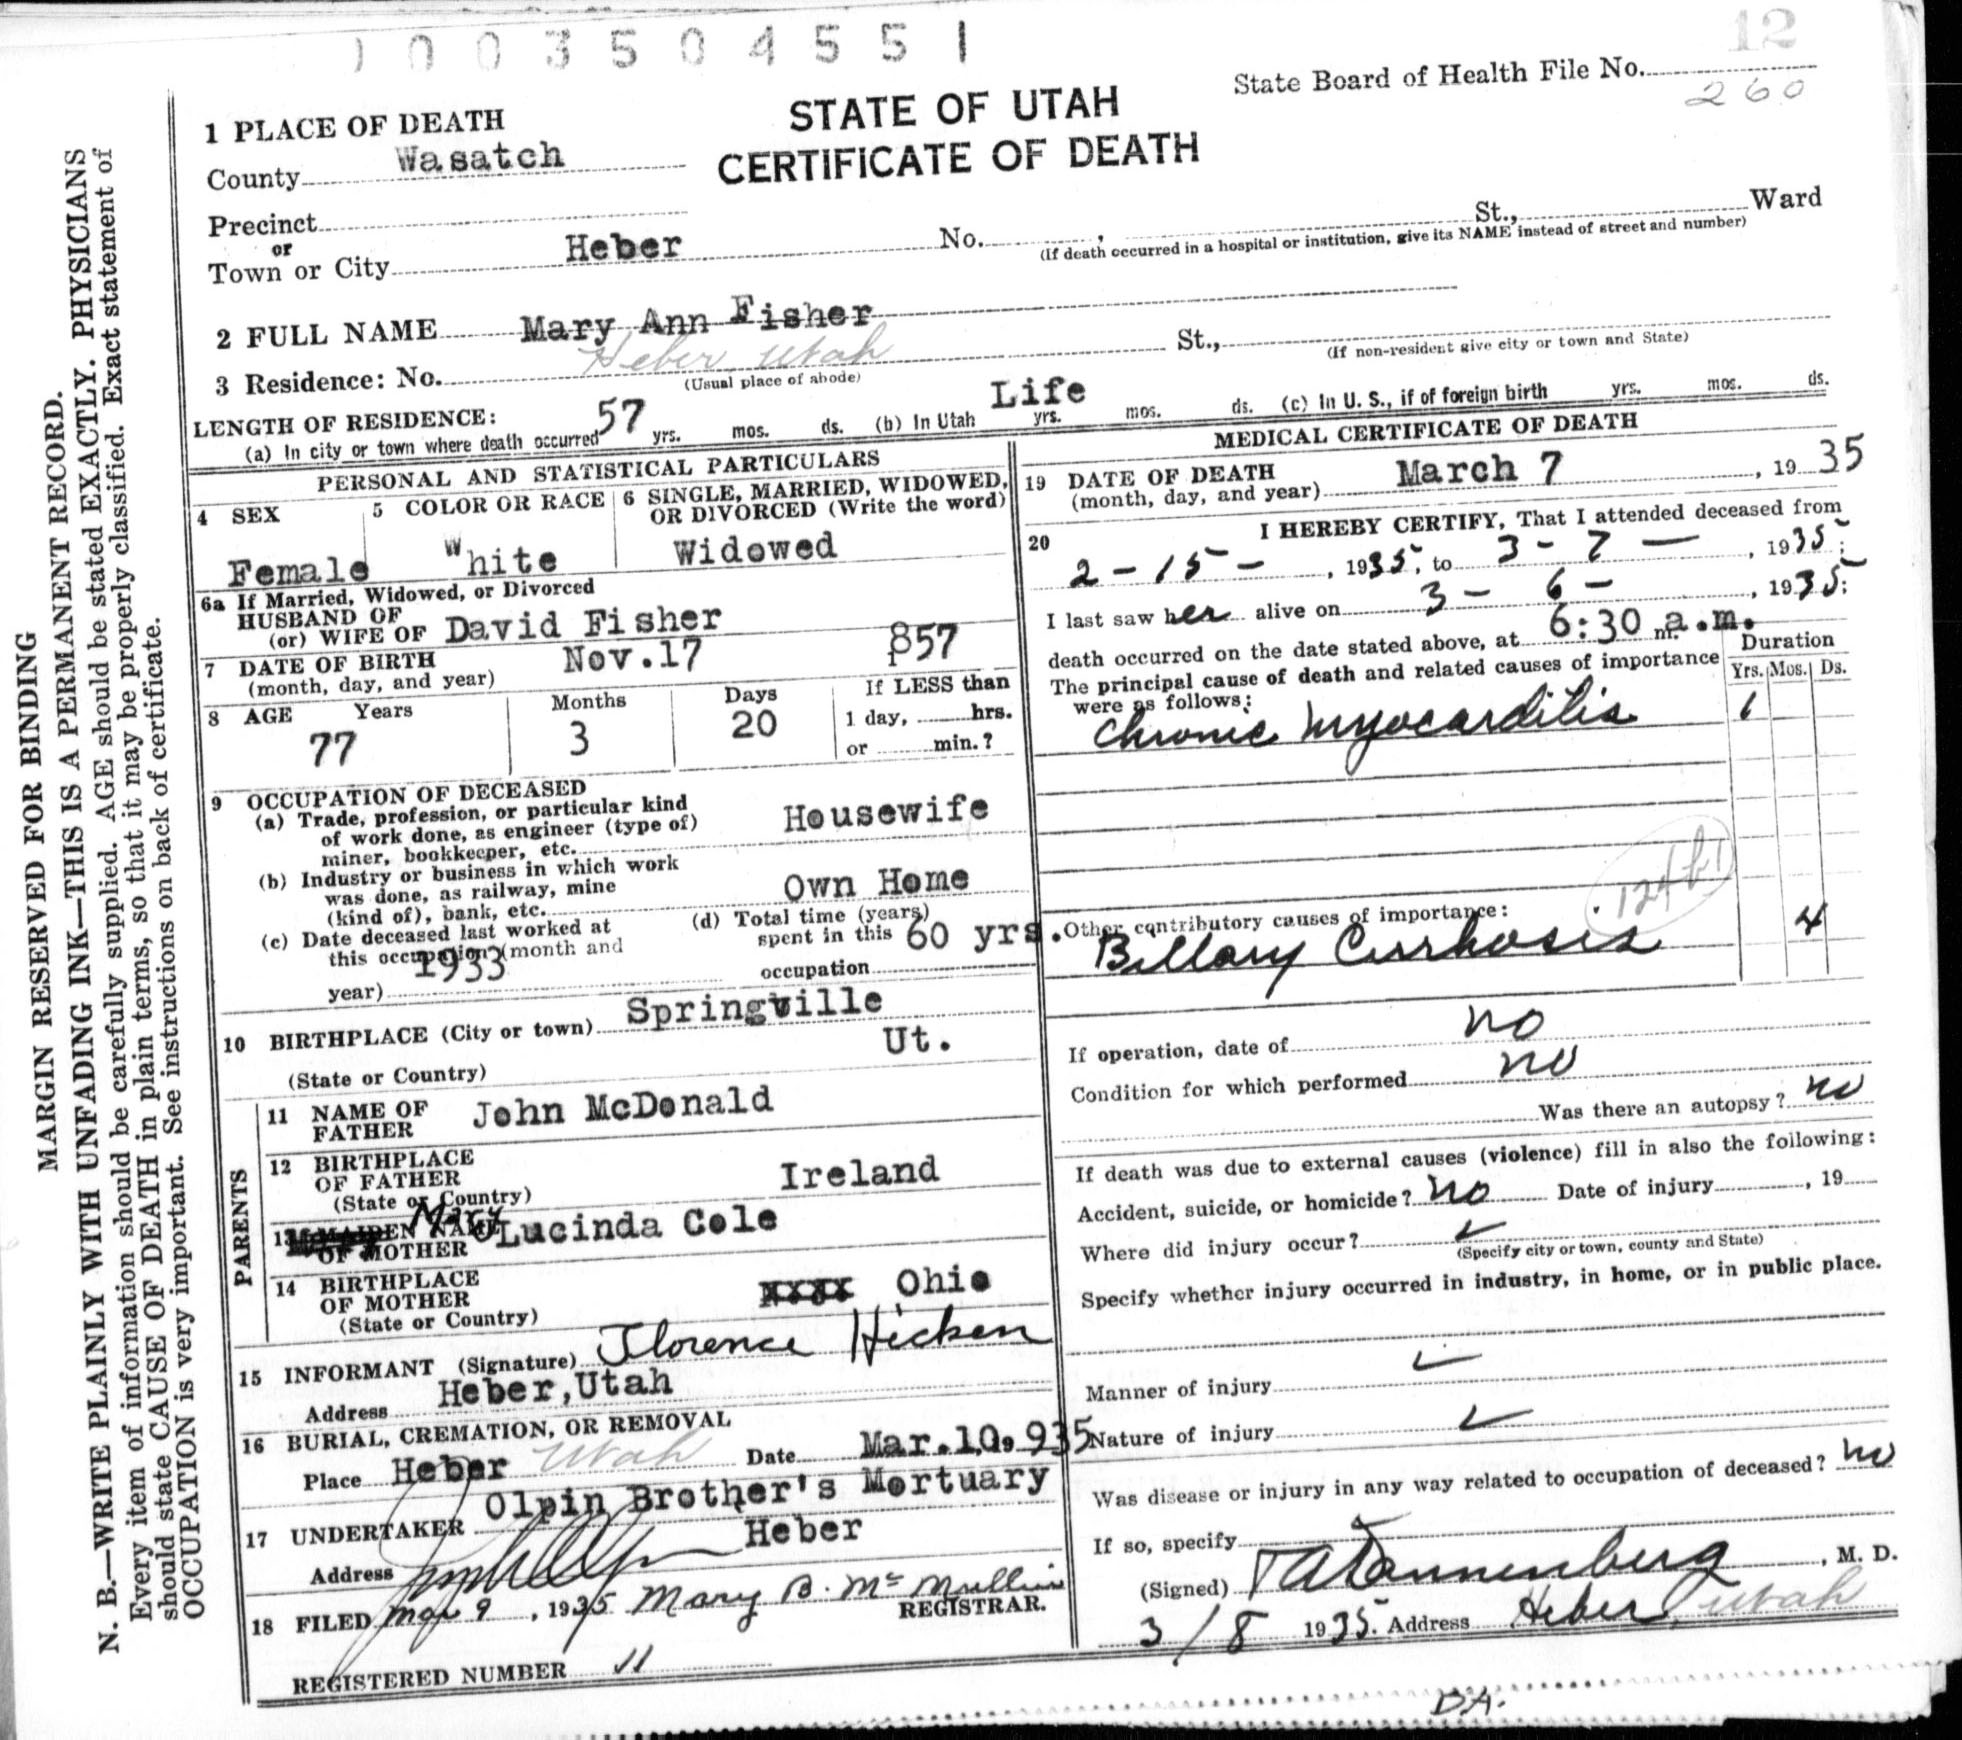 1 0 0 3 5 0 4 5 5 1
12
State Board of Health File No.
260
STATE OF UTAH
CERTIFICATE OF DEATH
1 PLACE OF DEATH
County Wasatch
Precinct
or
Town or City Heber No. , St., Ward
(If death occurred in a hospital or institution, give its NAME instead of street and number)
2 FULL NAME Mary Ann Fisher
3 Residence: No. Heber Utah St.,
(Usual place of abode) (If non-resident give city or town and State)
LENGTH OF RESIDENCE:
(a) In city or town where death occurred 57 yrs. mos. ds. (b) In Utah Life yrs. mos. ds. (c) In U. S., if of foreign birth yrs. mos. ds.
PERSONAL AND STATISTICAL PARTICULARS
4 SEX
Female
5 COLOR OR RACE
White
6 SINGLE, MARRIED, WIDOWED,
OR DIVORCED (Write the word)
Widowed
6a If Married, Widowed, or Divorced
HUSBAND OF
(or) WIFE OF David Fisher
7 DATE OF BIRTH Nov.17 857
(month, day, and year)
8 AGE Years Months Days If LESS than
77 3 20 1 day, hrs.
or min.?
9 OCCUPATION OF DECEASED
(a) Trade, profession, or particular kind
of work done, as engineer (type of)
miner, bookkeeper, etc. Housewife
(b) Industry or business in which work
was done, as railway, mine
(kind of), bank, etc. Own Home
(c) Date deceased last worked at
this occupation (month and
year) 1933
(d) Total time (years)
spent in this 60 yrs.
occupation
10 BIRTHPLACE (City or town) Springville
Ut.
(State or Country)
PARENTS
11 NAME OF
FATHER John McDonald
12 BIRTHPLACE
OF FATHER Ireland
(State or Country)
13 MAIDEN NAME
OF MOTHER Mary Lucinda Cole
14 BIRTHPLACE
OF MOTHER xxxx Ohio
(State or Country)
15 INFORMANT (Signature) Florence Hicken
Address Heber,Utah
16 BURIAL, CREMATION, OR REMOVAL
Place Heber Utah Date Mar.10, 935
17 UNDERTAKER Olpin Brother's Mortuary
Address Heber
18 FILED Mar 9, 1935 Mary B. McMullin
REGISTRAR.
REGISTERED NUMBER 11
MEDICAL CERTIFICATE OF DEATH
19 DATE OF DEATH March 7, 1935
(month, day, and year)
20 I HEREBY CERTIFY, That I attended deceased from
2-15-, 1935, to 3-7-, 1935;
I last saw her alive on 3-6-, 1935;
death occurred on the date stated above, at 6:30 a.m. m.
The principal cause of death and related causes of importance
were as follows:
Duration
Yrs. Mos. Ds.
Chronic Myocarditis 1
124b1
Other contributory causes of importance:
Billary Cirrhosis 4
If operation, date of no
Condition for which performed no
Was there an autopsy? no
If death was due to external causes (violence) fill in also the following:
Accident, suicide, or homicide? no Date of injury , 19
Where did injury occur? ✓
(Specify city or town, county and State)
Specify whether injury occurred in industry, in home, or in public place.
Manner of injury ✓
Nature of injury ✓
Was disease or injury in any way related to occupation of deceased? no
If so, specify
(Signed) TA Dannenberg, M. D.
3/8 1935. Address Heber, Utah
D.A.
MARGIN RESERVED FOR BINDING
N. B.—WRITE PLAINLY WITH UNFADING INK—THIS IS A PERMANENT RECORD.
Every item of information should be carefully supplied. AGE should be stated EXACTLY. PHYSICIANS
should state CAUSE OF DEATH in plain terms, so that it may be properly classified. Exact statement of
OCCUPATION is very important. See instructions on back of certificate.